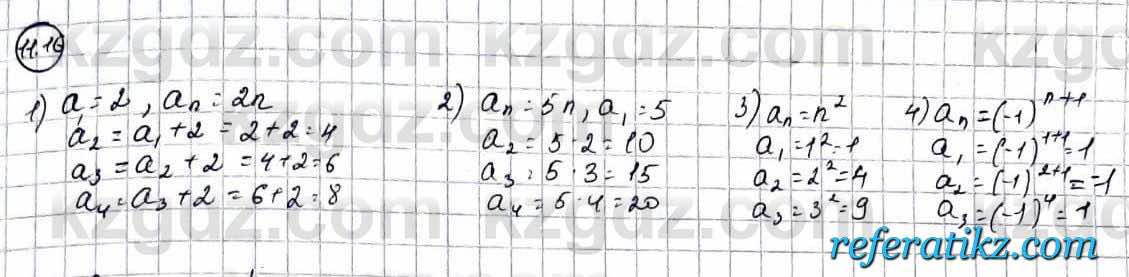 kzgdz.com kzgdz.com kzgdz.com
11.16
1) a₁=2, aₙ=2n
a₂=a₁+2=2+2=4
a₃=a₂+2=4+2=6
a₄=a₃+2=6+2=8
2) aₙ=5n, a₁=5
a₂=5·2=10
a₃=5·3=15
a₄=5·4=20
3) aₙ=n²
a₁=1²=1
a₂=2²=4
a₃=3²=9
4) aₙ=(-1)ⁿ⁺¹
a₁=(-1)¹⁺¹=1
a₂=(-1)²⁺¹=-1
a₃=(-1)⁴=1
referatikz.com